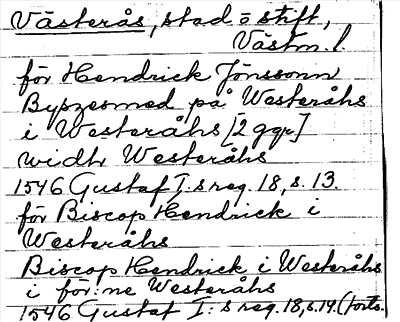 Västerås, stad o stift,
Västm. l.
för Hendrick Jönssonn
Bypzesmed på Westeråhs
i Westeråhs [2 ggr]
widh Westeråhs
1546 Gustaf I:s reg. 18, s. 13.
för Biscop Hendrick i
Westeråhs
Biscop Hendrick i Westeråhs
i för:ne Westeråhs
1546 Gustaf I:s reg. 18, s. 14. (forts.